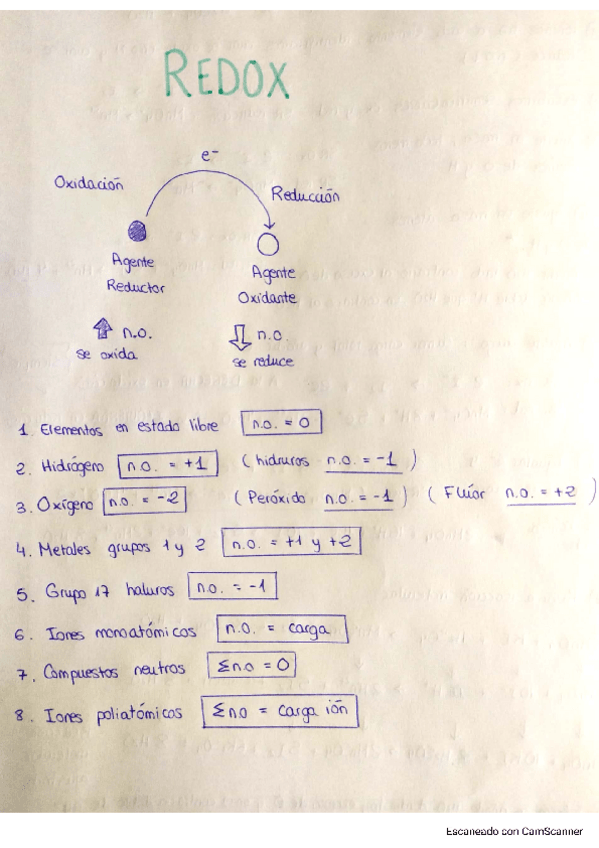 REDOX
e-
Oxidación
Reducción
Agente
Reductor
Agente
Oxidante
⇧ n.o.
se oxida
⇩ n.o
se reduce
1. Elementos en estado libre n.o. = 0
2. Hidrógeno n.o. = +1 (hidruros n.o. = -1)
3. Oxígeno n.o. = -2 (Peróxido n.o. = -1) (Flúor n.o. = +2)
4. Metales grupos 1 y 2 n.o. = +1 y +2
5. Grupo 17 haluros n.o. = -1
6. Iones monoatómicos n.o. = carga
7. Compuestos neutros Σn.o = 0
8. Iones poliatómicos Σn.o = carga ión
Escaneado con CamScanner